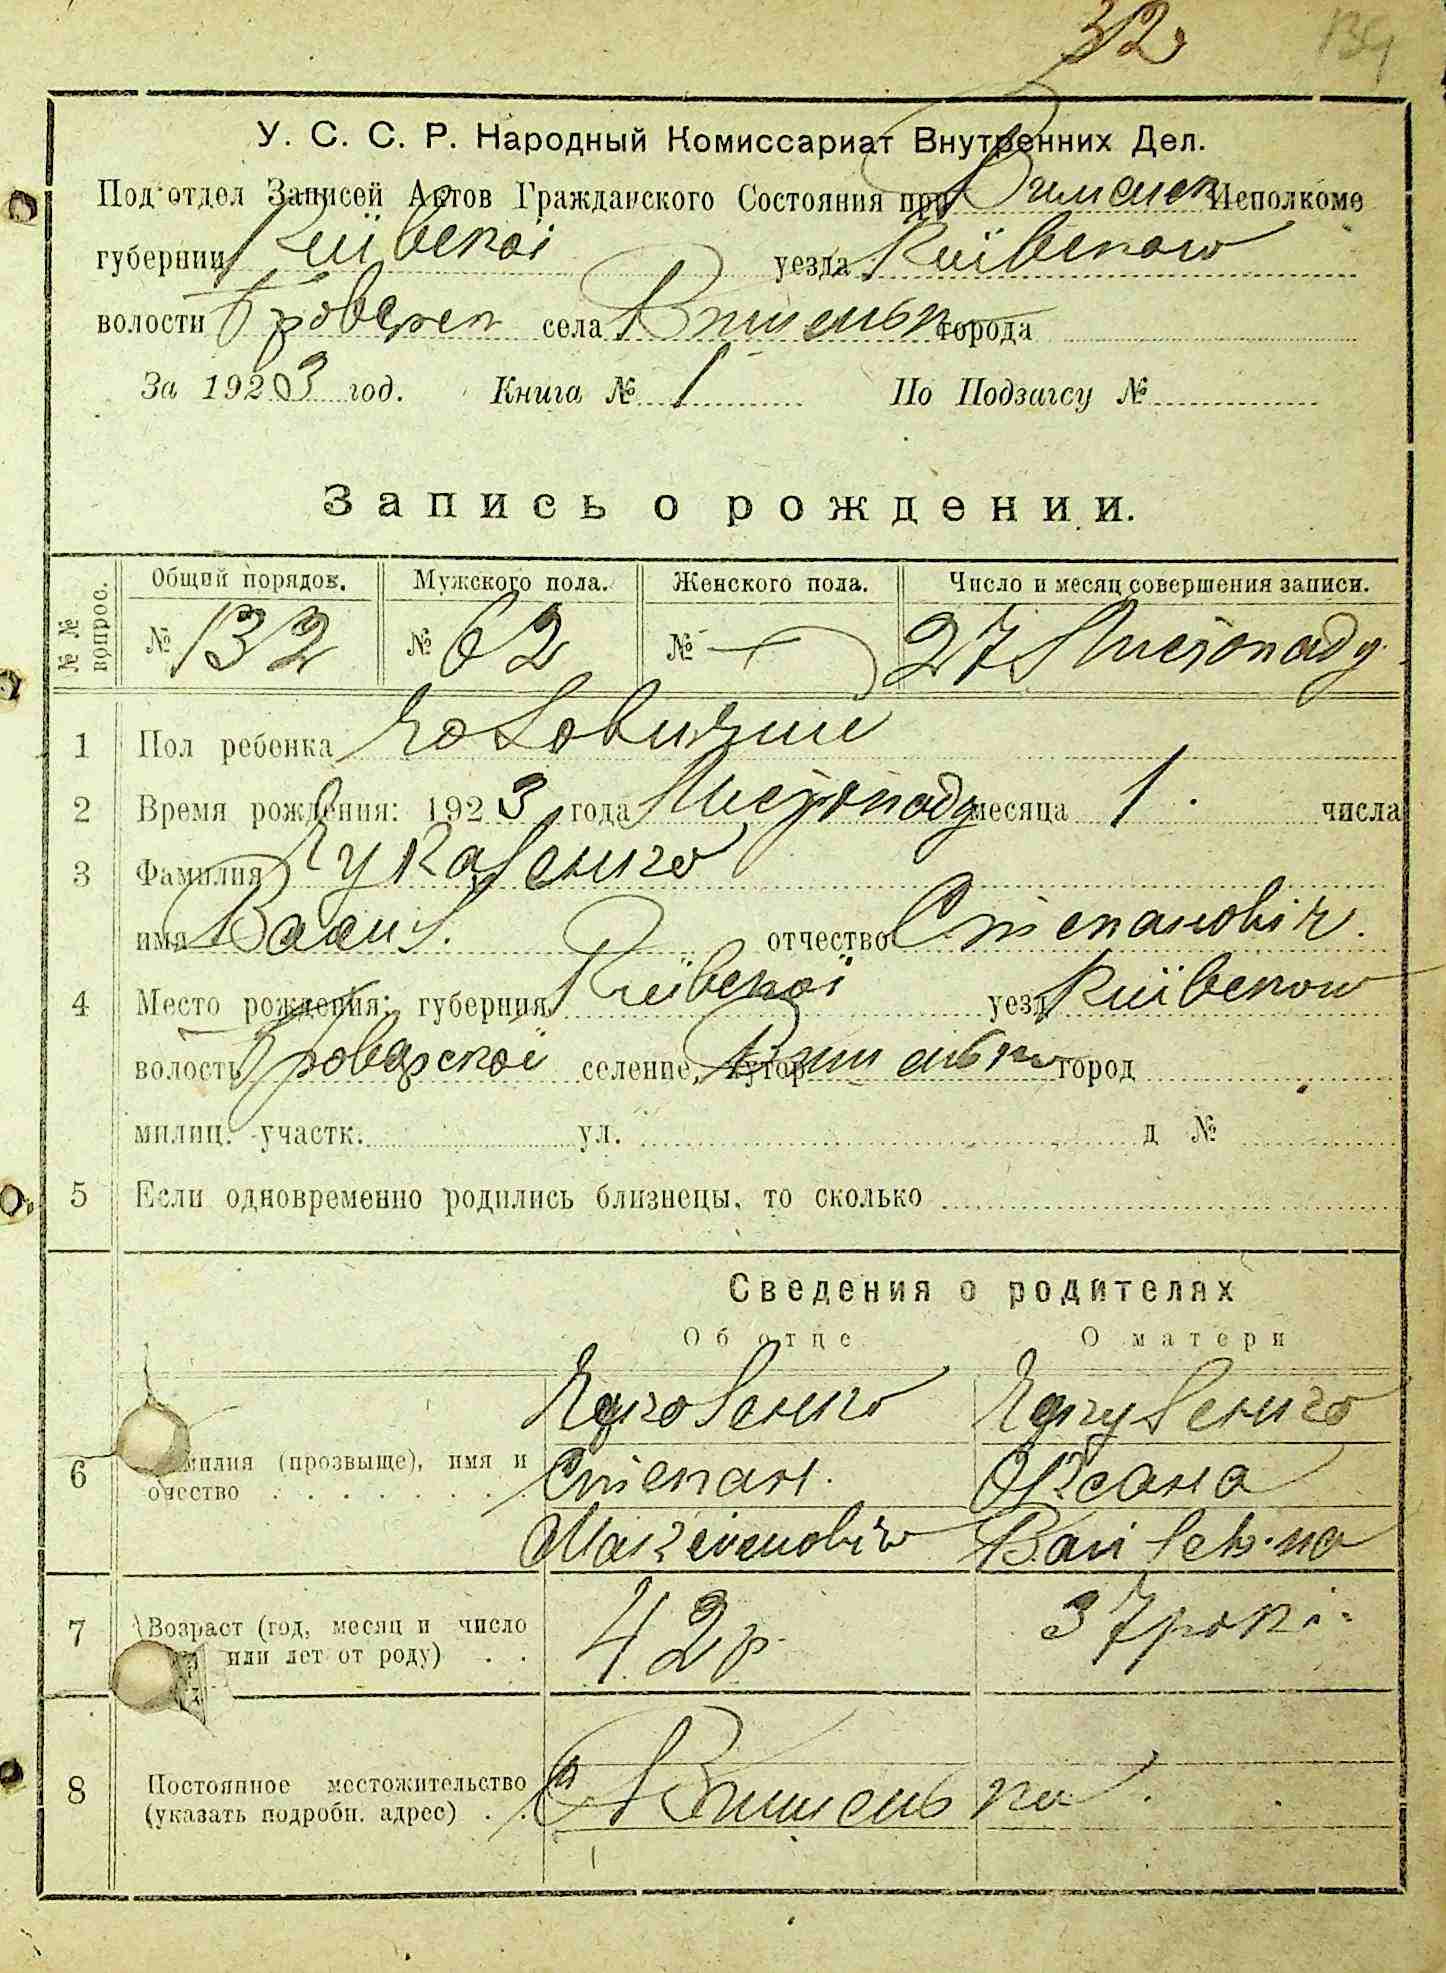 32
134
У. С. С. Р. Народный Комиссариат Внутренних Дел.
Под'отдел Записей Актов Гражданского Состояния при Исполкоме
губернии Київскої уезда Київсково
волости Броварск села города
За 1923 год. Книга № 1 По Подзагсу №
Запись о рождении.
№ № вопрос. Общий порядов. Мужского пола. Женского пола. Число и месяц совершения записи.
№ 132 № 62 № — 27 Листопаду
1 Пол ребенка
2 Время рождения: 1923 года Листопаду месяца 1 числа
3 Фамилия
имя Василь отчество Степановіч.
4 Место рождения: губерния Київскої уезд Київсково
волость Броварскої селение, хутор город
милиц. участк. ул. д №
5 Если одновременно родились близнецы, то сколько
Сведения о родителях
Об отце О матери
6 Фамилия (прозвыще), имя и отчество
Степан. Оксана
7 Возраст (год, месяц и число или лет от роду) 42 р. 37 рокі
8 Постоянное местожительство (указать подробн. адрес)